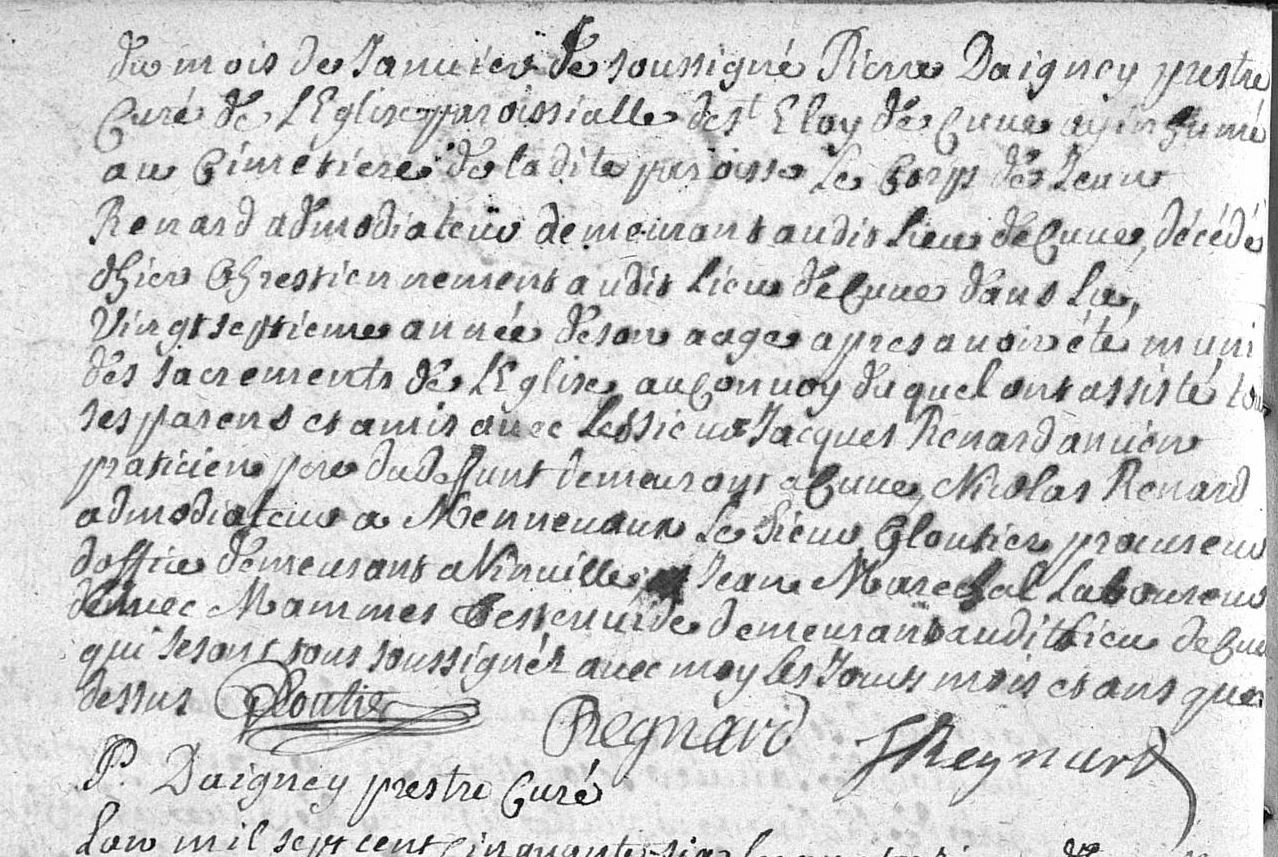 du mois de Januier Je soussigné Pierre Daigney prestre
Curé de L'Eglise paroissialle de st Eloy de Cuue ay inhumé
au Cimétiere de la dite paroisse Le Corps de Jean
Renard admodiateur demeurant audit Lieu de Cuue, décédé
d'hier Chrestiennement audit Lieu de Cuue dans La,
vingtseptieme année de son aage apres auoir été muni
des sacrements de L'Eglise au Conuoy du quel ont assisté tous
ses parens et amis auec Les sieur Jacques Renard ancien
praticien pere du deffunt demeurant a Cuue, Nicolas Renard
admodiateur a Menneuaux Le sieur Cloutier procureur
doffice demeurant a Vinuille Jean Marechal Laboureur
Mammes demeurant audit Lieu de Cuue
qui se sont tous soussignéz auec moy Les Jours mois et ans que
dessus Cloutier Regnard J Regnard
P. Daigney prestre Curé
Lan mil sept cent cinquante six